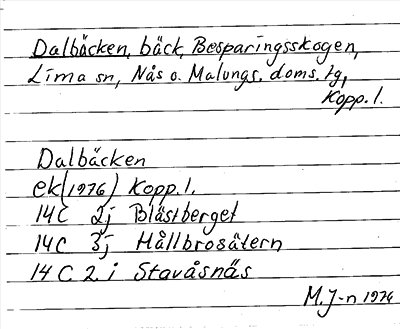 Dalbäcken, bäck, Besparingsskogen,
Lima sn, Nås o. Malungs. doms. tg,
Kopp. l.
Dalbäcken
ek (1976) Kopp. l.
14C 2j Blästberget
14C 3j Hållbrosätern
14 C 2 i Stavåsnäs
M. J-n 1976